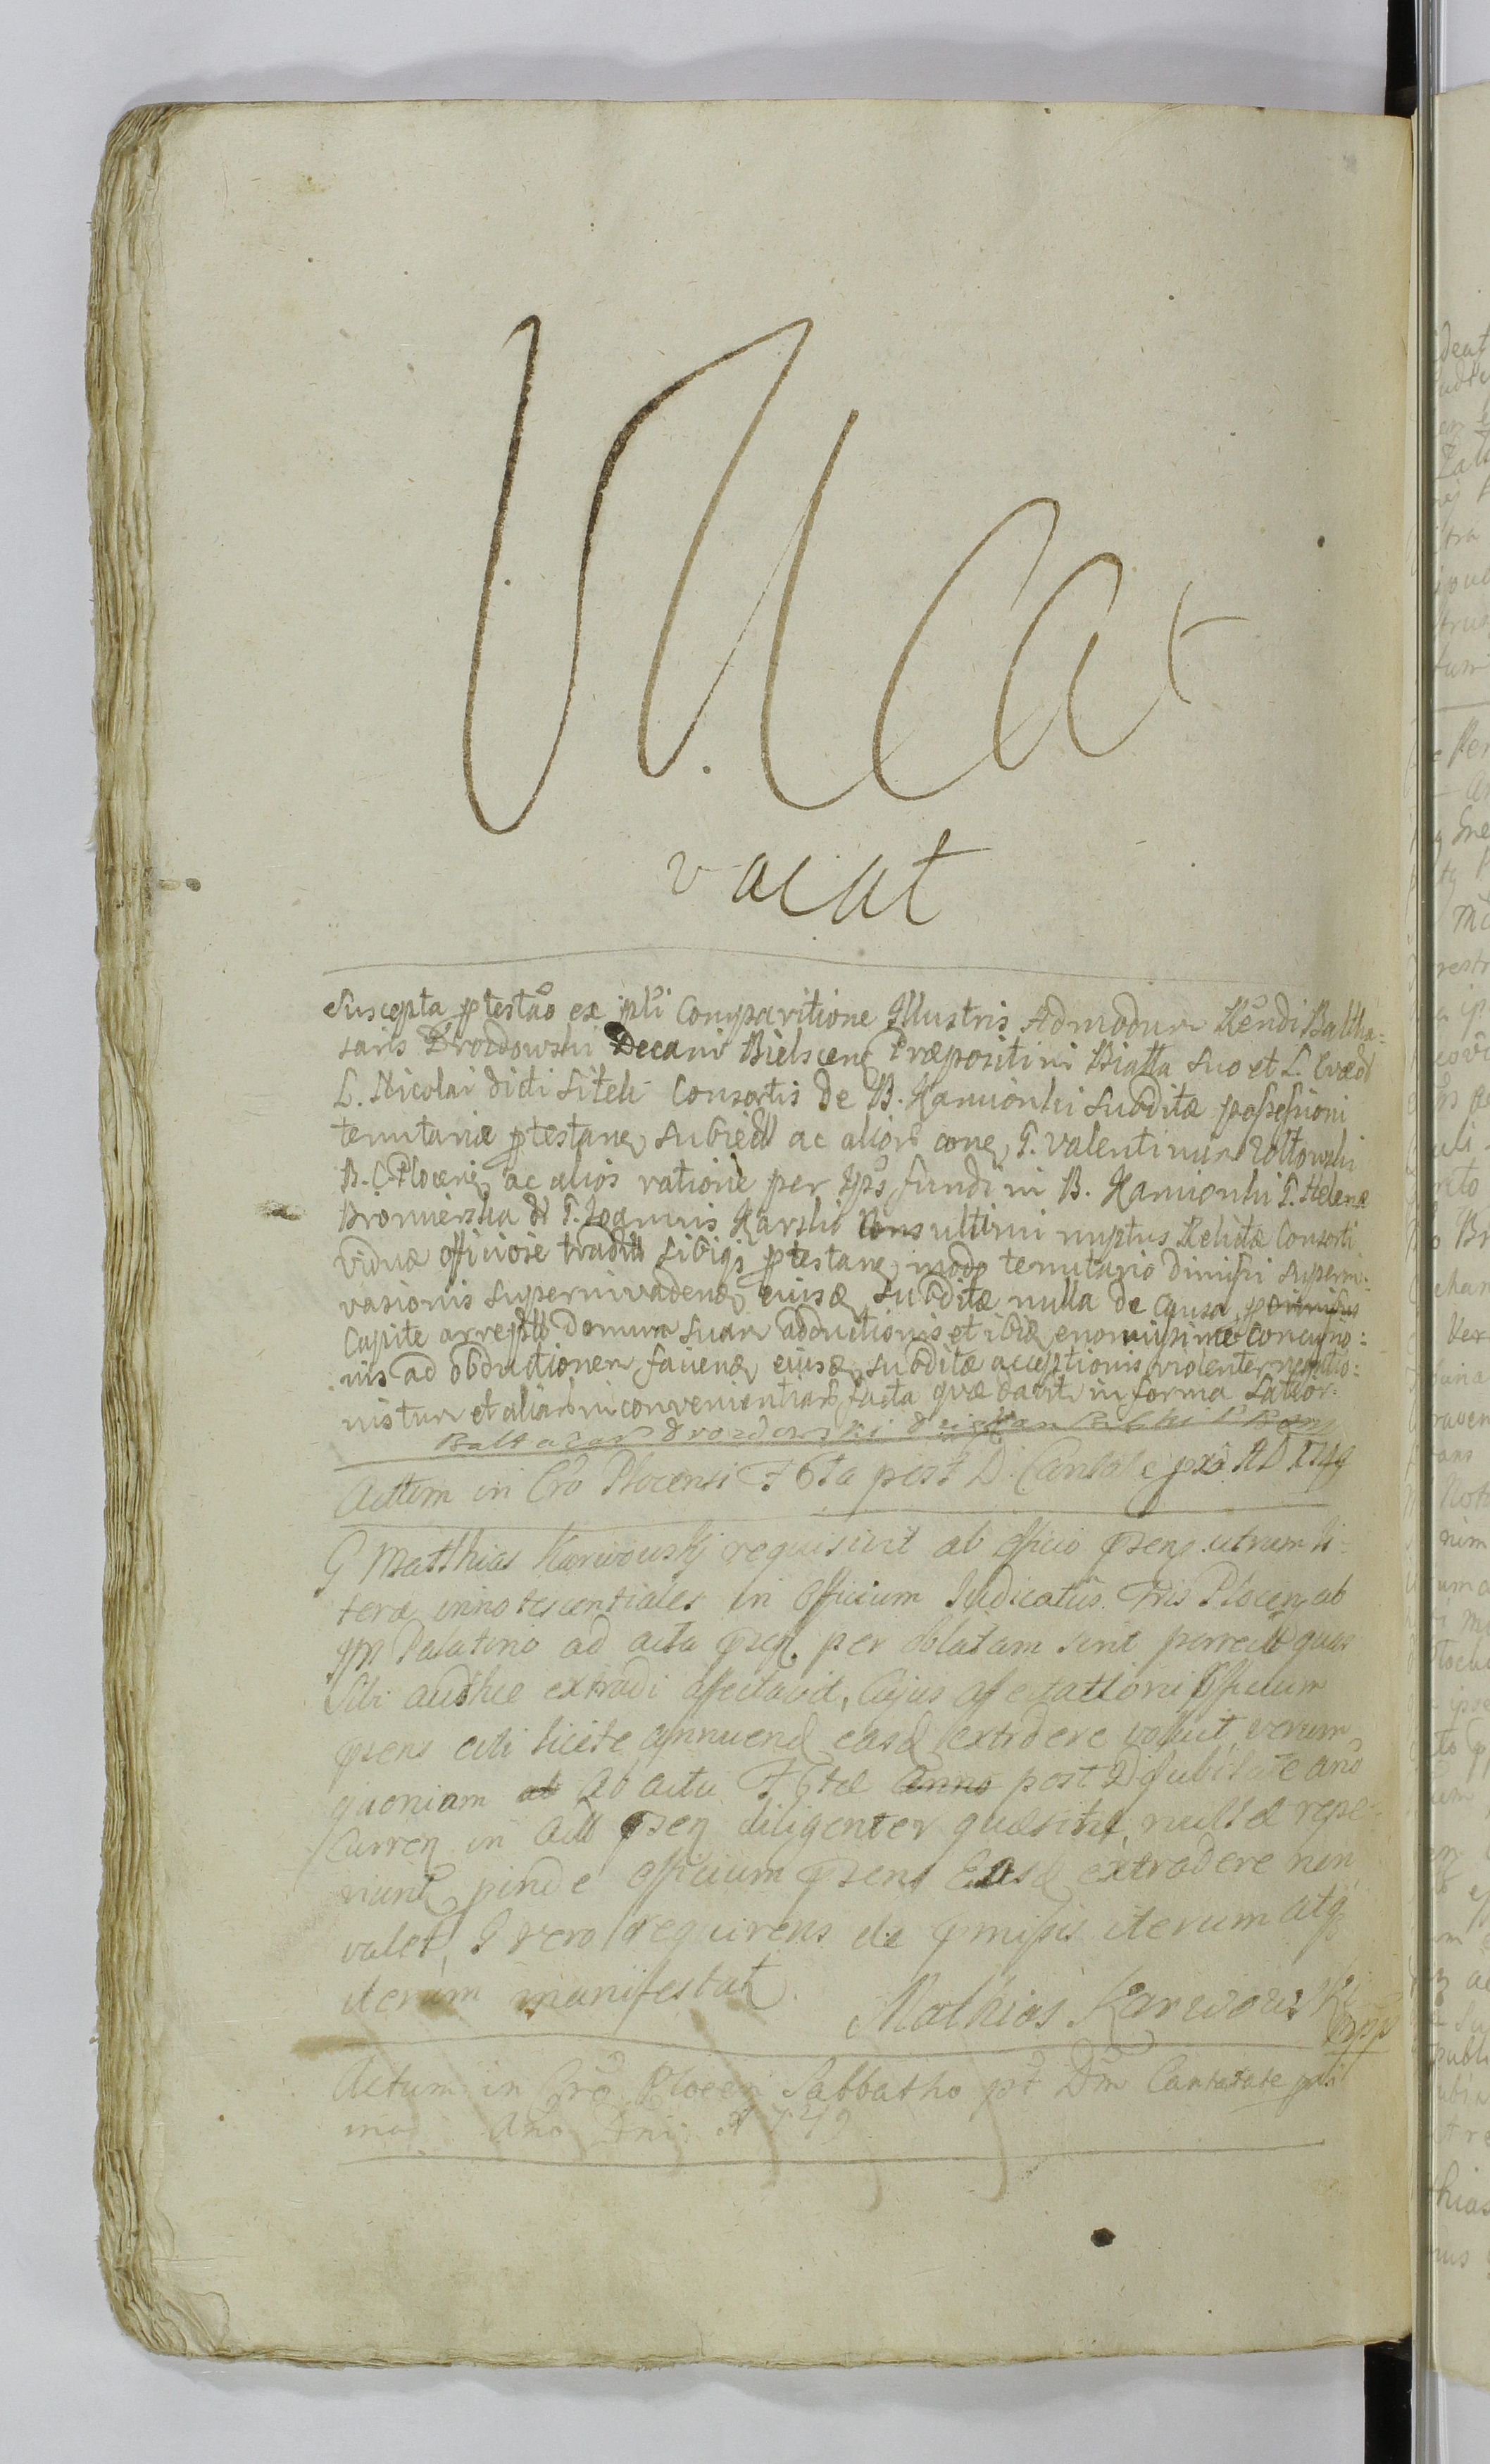 Vacat
vacat
Suscepta ptestao ex pti Comparitione Illustris Admodum Rendi Baltha=
saris Drozdowski Decani Bielscen Præpositi in Biatta suo et L. Cræd
L. Nicolai dicti Sitek Consortis de B. Kamionki Subditæ possessioni
tenutariæ ptestane subiectt ac alior cone G. Valentinum Zoltowski
B. C. Plocene ac alios ratione per Ips fundi in B. Kamionki G. Helenæ
Bromierska G. Joannis Karski Consultimi nuptus Relictæ Consorti
viduæ officiose traditt sibiqs ptestane modo tenutario dimissi superin
vasionis superinvadend eiusd subditæ nulla de causa
Capite arreptt domum suam adductionis et ibid enormissime concusno=
nis ad obductionem faciend eiusd subditæ acceptionis violenter
nis tum et aliar inconvenientiar facta quæ dabit in forma Latior=
Baltazar Drozdowski dziekan Bielski P
Actum in Cro Plocensi F 6ta post D. Cantate pxa AD 1749
G Matthias Karwowskj requisivit ab officio psens utrum li=
teræ innotescentiales in Officium Iudicatus Tris Plocen ab
Ips Palatino ad acta psen per oblatam sint porrectt quas
sibi authce extradi affectavit, Cujus affectationi Officium
psens uti licite annuend easd extradere voluit, verum
quoniam ab ab actu F 6tæ anno post D Jubilate ano
Curren in Actt psen diligenter quæsitæ, nullæ repe=
riunt pinde officium psens Easd extradere non
valet, G vero requirens de pmissis iterum atq
iterum manifestat.
Mathias Karwowski
mpp
Actum in Cro Plocen Sabbatho pt Dm Cantate pxi
mo Ano Dni 1749